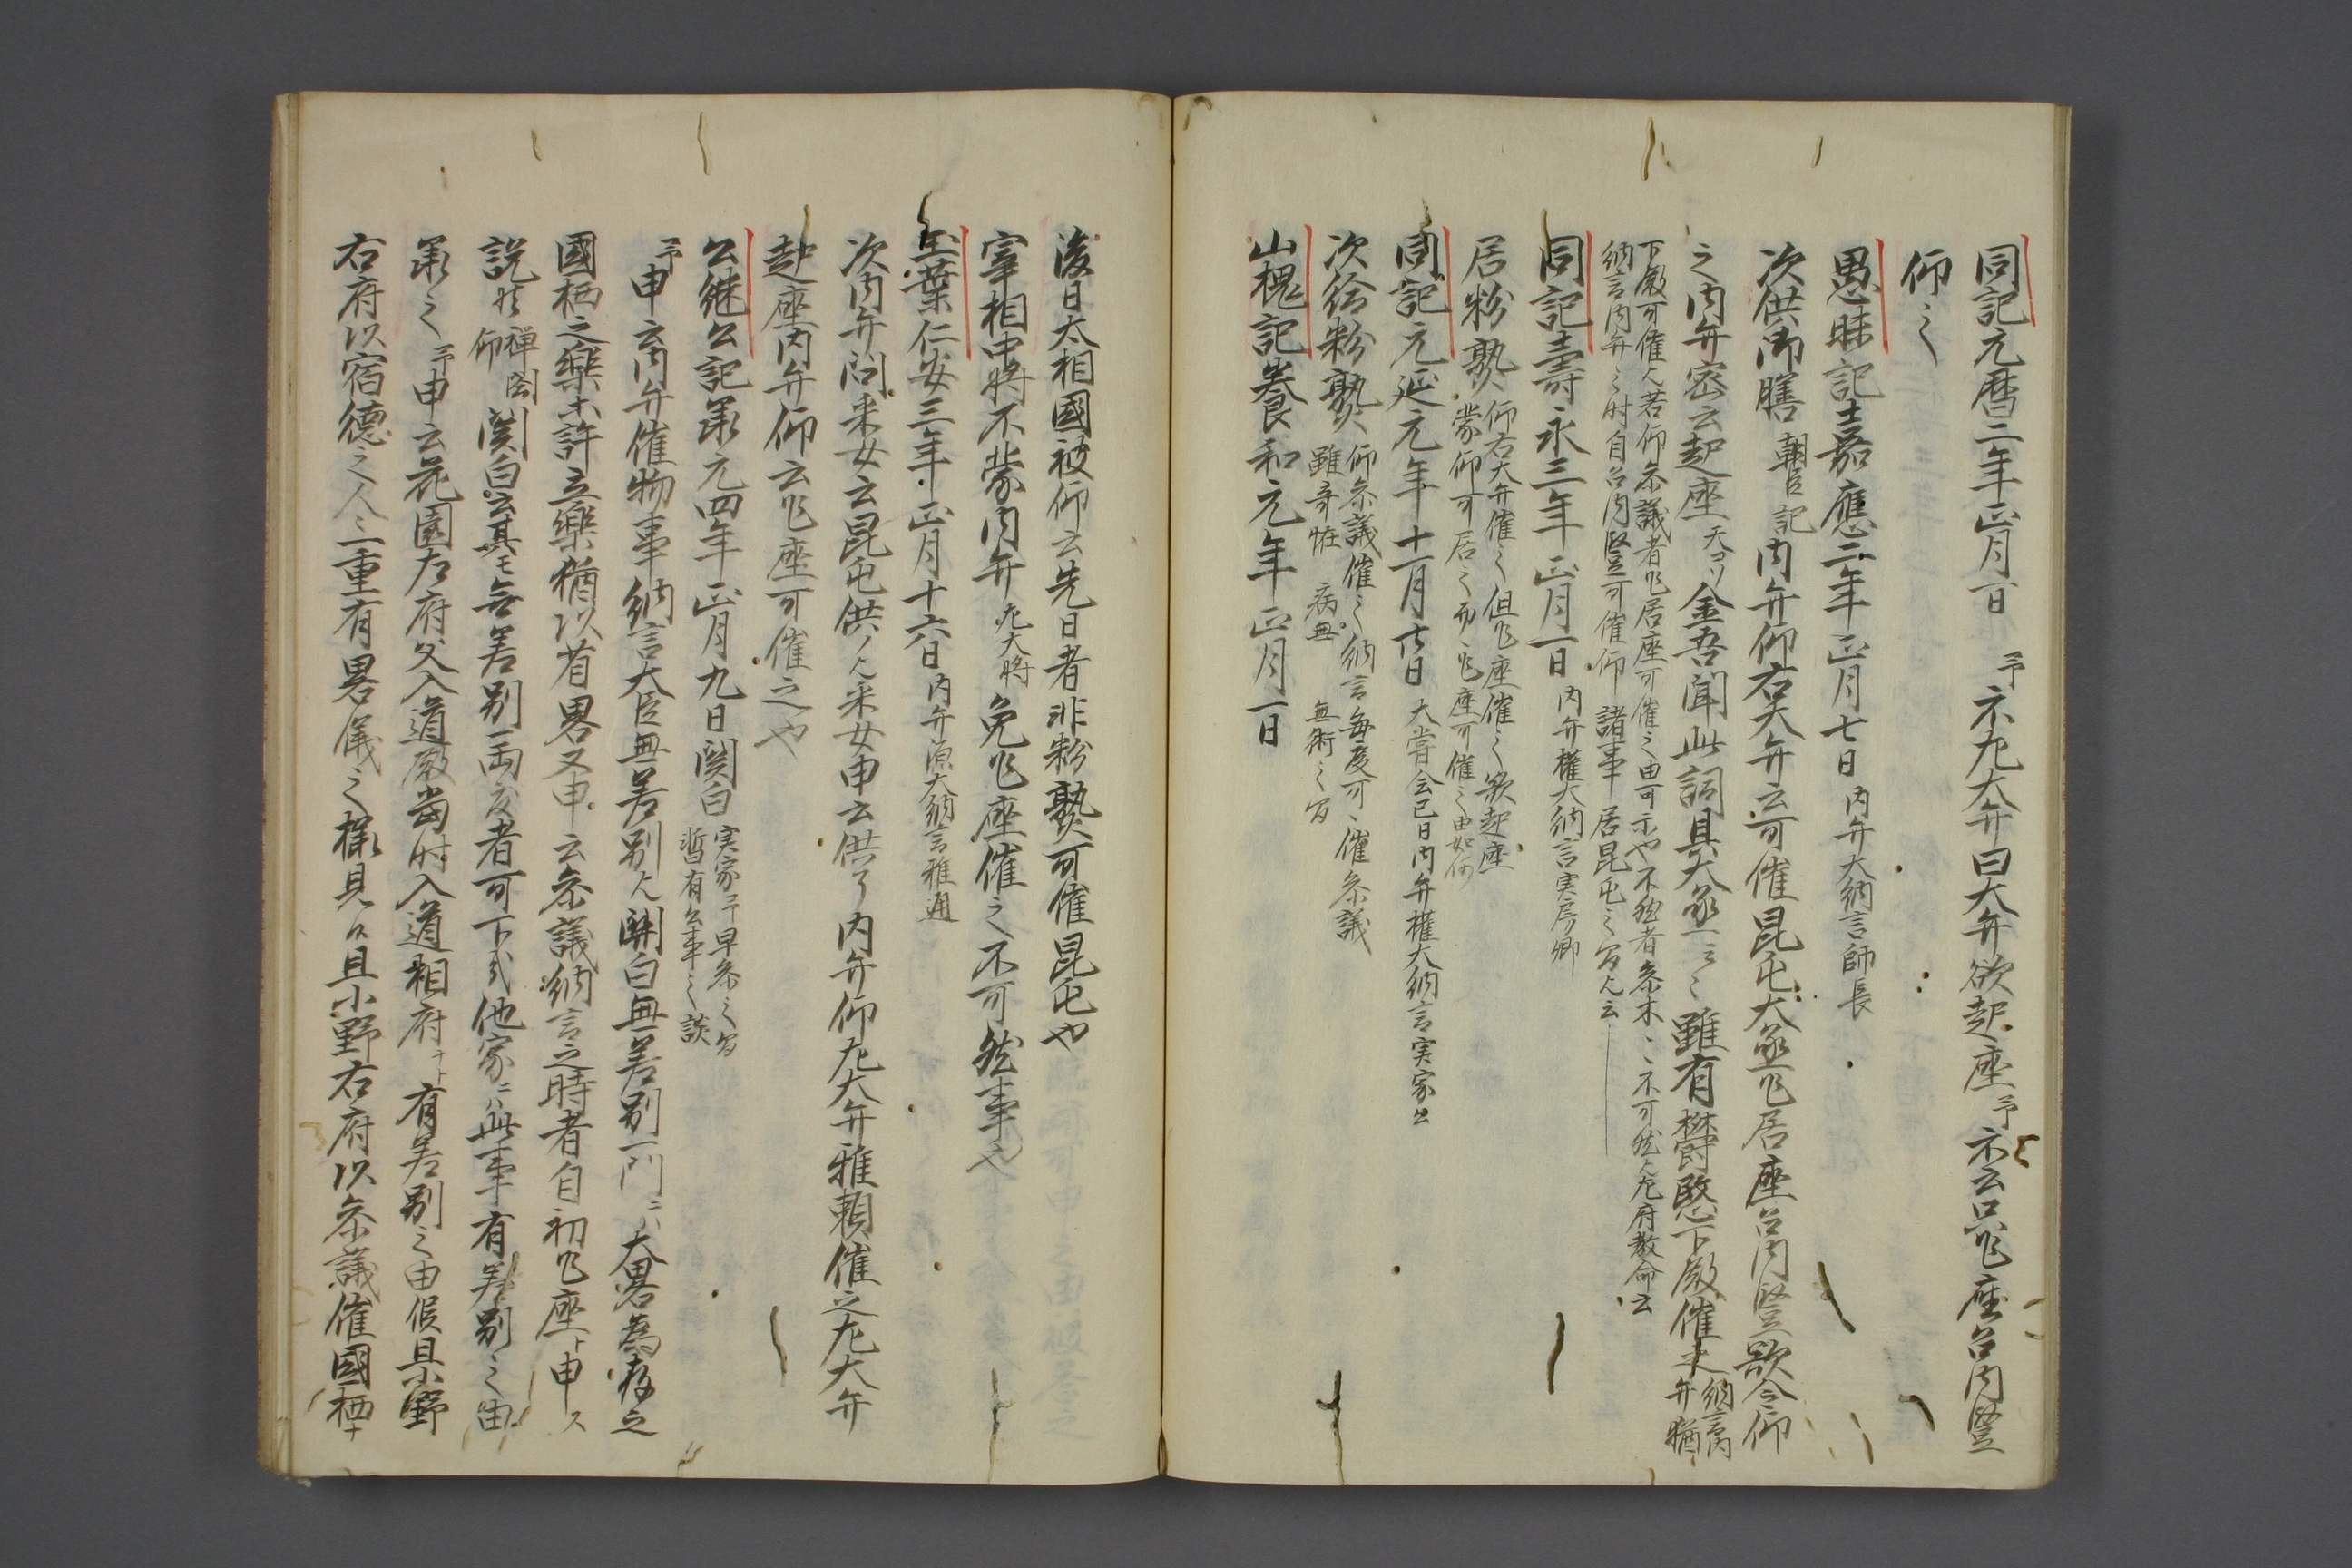 同記元暦二年正月一日予示左大弁曰大弁欲起座予示云只乍座召内竪
仰之
愚昧記嘉應二年正月七日内弁大納言師長
次供御膳朝臣記内弁仰右大弁云可催昆屯大丞乍居座召内竪歟令仰
之内弁密云起座天コソ金吾聞此詞具大丞云々雖有欝愍下殿催之納言内弁猶
下殿可催之若仰参議者乍居座可催之由可示や不然者参木〻不可然々左府教命云
納言内弁之时自召内竪可催仰諸事居昆屯之間云
同記壽永三年正月一日内弁權大納言実房卿
居粉熟仰右大弁催之但乍座催之欲起座
蒙仰可居之而乍座可催之由如何
同記元延元年十一月廿日大嘗会巳日内弁權大納言実家公
次給粉熟仰参議催之納言毎度可〻催参議
雖奇恠病無無術之間
山槐記養和元年正月一日
後日太相國被仰云先日者非粉熟可催昆屯や
宰相中将不蒙内弁左大将免乍座催之不可然事也
玉葉仁安三年正月十六日内弁源大納言雅通
次内弁问采女云昆屯供ノ之采女申云供了内弁仰左大弁雅頼催之左大弁
起座内弁仰云乍座可催之や
公継公記承元四年正月九日関白実家予早参之間
暫有公事之談
予申云内弁催物事納言大臣無差別之関白無差別一门ニハ大畧為存之
國栖之樂不許立樂猶以若畧又申云参議納言之時者自初乍座ト申ス
説禅閤仰関白云其モ無差別両度者可下弐他家ニハ此事有差別之由
承之予申云花園左府父入道殿當时入道相府ナト有差別之由候且小野
右府以宿德之人二重有畧儀之樣見候且小野右府以参議催國栖ナ